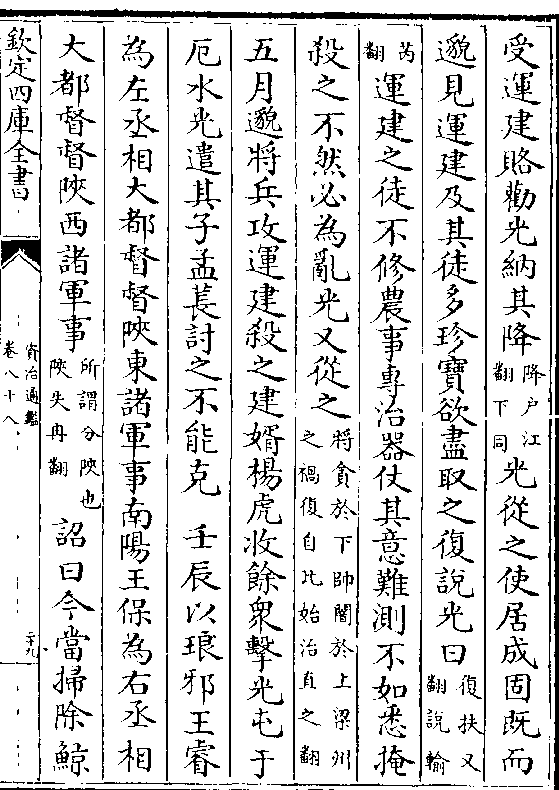 受運建賂勸光納其降降户江翻下同光從之使居成固既而
邈見運建及其徒多珍寶欲盡取之復說光曰復扶又翻說輸
芮翻運建之徒不修農事專治器仗其意難測不如悉掩
殺之不然必為亂光又從之將貪於下帥闇於上梁州之禍復自此始治直之翻
五月邈將兵攻運建殺之建婿楊虎收餘衆擊光屯于
厄水光遣其子孟萇討之不能克　壬辰以琅邪王睿
為左丞相大都督督陜東諸軍事南陽王保為右丞相
大都督督陜西諸軍事所謂分陜也陜失冉翻詔曰今當掃除鯨
欽定四庫全書
資治通鑑
卷八十八
二十九